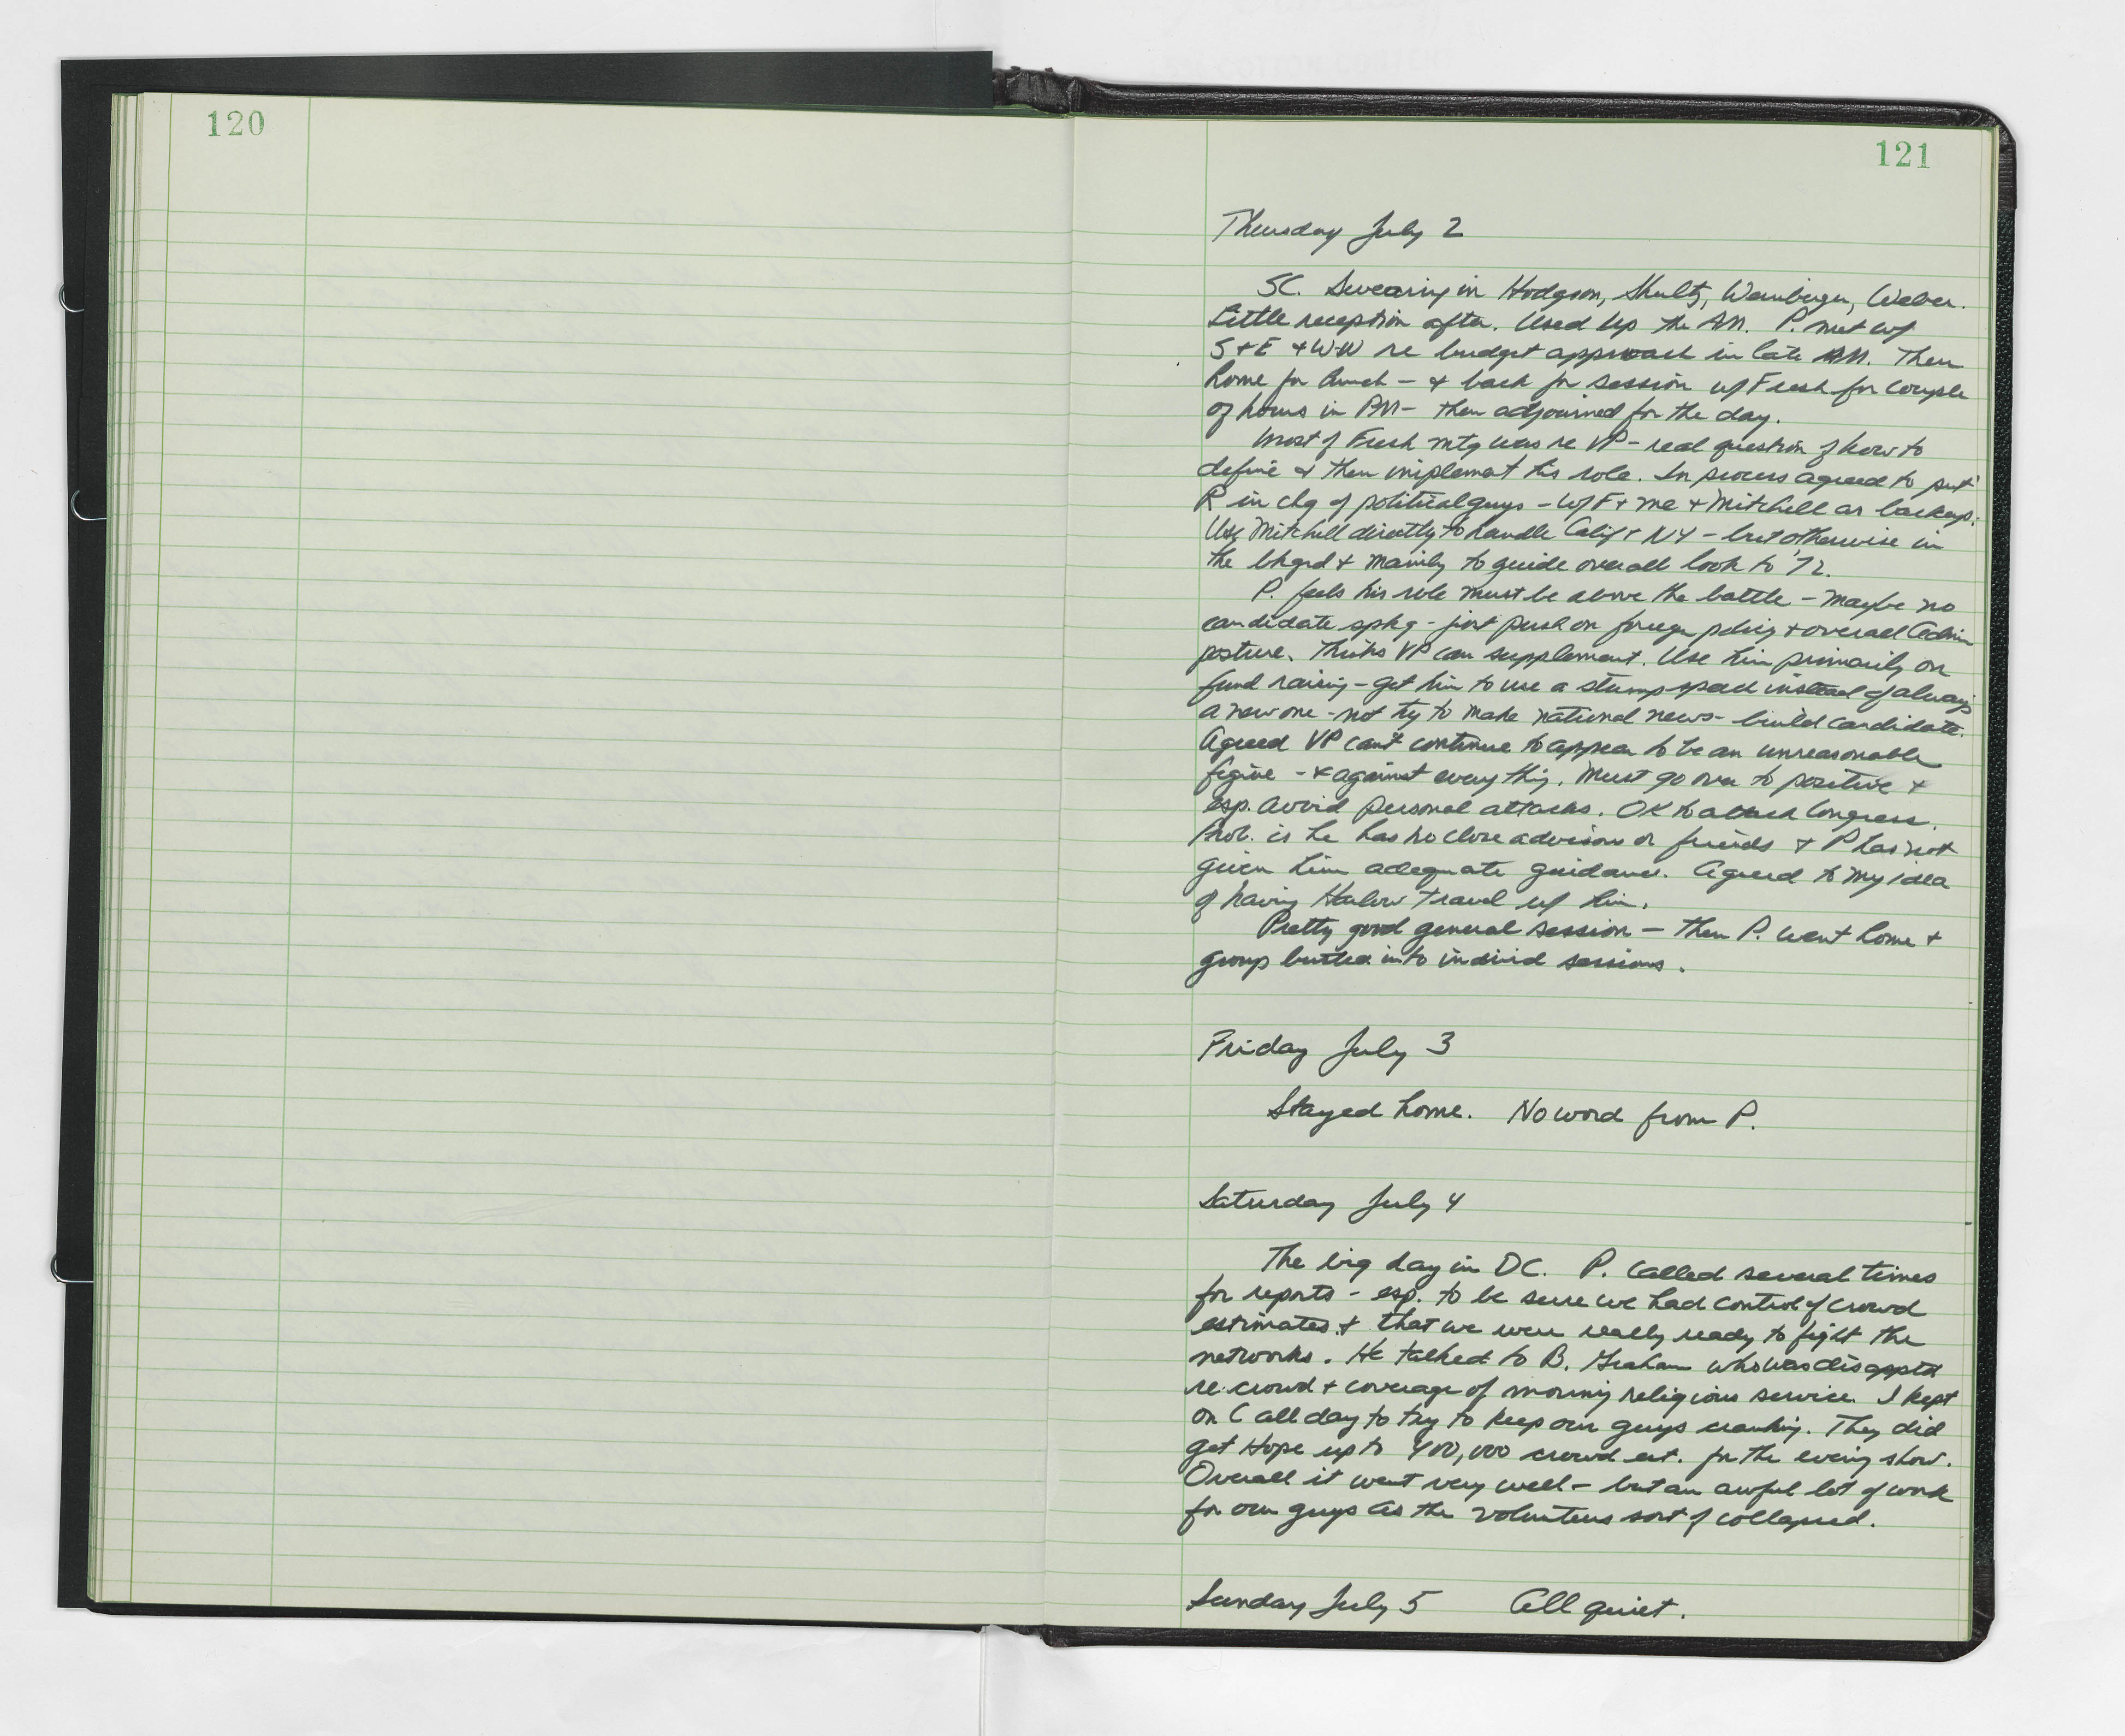 120
121
Thursday July 2
SC. Swearing in Hodgson, Shultz, Weinberger, Weber.
Little reception after. Used up the AM. P. met w/
S + E + W-W re budget approach in late AM. Then
home for lunch - & back for session w/ Fresh for couple
of hours in PM - then adjourned for the day.
Most of Fresh mtg was re VP - real question of how to
define & then implement his role. In process agreed to put
R in chg of political guys - w/ F + me + Mitchell as backup.
Use Mitchell directly to handle Calif + NY - but otherwise in
the bkgrd & mainly to guide overall look to '72.
P. feels his role must be above the battle - maybe no
candidate spkg - just push on foreign policy & overall Admin
posture. Thinks VP can supplement. Use him primarily on
fund raising - get him to use a stump speech instead of always
a new one - not try to make national news - build candidate.
Agreed VP can't continue to appear to be an unreasonable
figure - & against everything. Must go over to positive &
esp. avoid personal attacks. OK to attack Congress.
Prob. is he has no close advisors or friends & P has not
given him adequate guidance. Agreed to my idea
of having Harlow travel w/ him.
Pretty good general session - then P. went home &
group into individ sessions.
Friday July 3
Stayed home. No word from P.
Saturday July 4
The big day in DC. P. called several times
for reports - esp. to be sure we had control of crowd
estimates & that we were really ready to fight the
networks. He talked to B. Graham who was disappted
re crowd & coverage of morning religious service. I kept
on C all day to try to keep our guys cranking. They did
get Hope up to 400,000 crowd est. for the evening show.
Overall it went very well - but an awful lot of work
for our guys as the volunteers sort of collapsed.
Sunday July 5 All quiet.